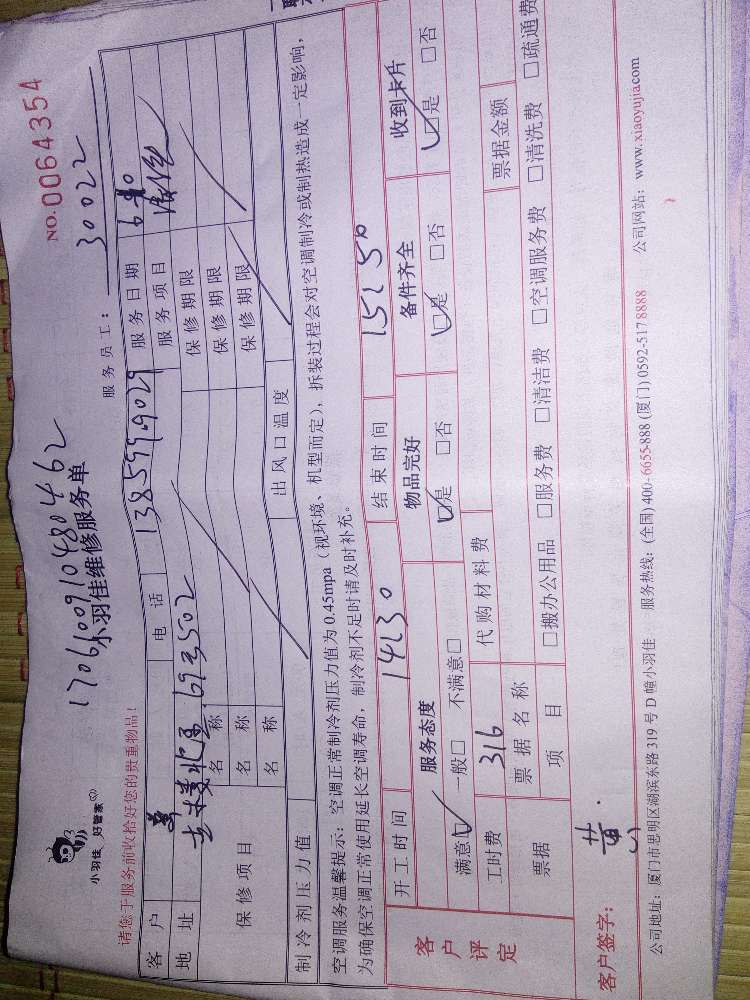 NO.0064354
30022
1706100910480462
小羽佳 好管家
小羽佳维修服务单
服务员工：
请您于服务前收拾好您的贵重物品！
客户 黄 电话 13859959029 服务日期
地址 693502 服务项目
保修项目 名称 保修期限
名称 保修期限
名称 保修期限
制冷剂压力值 出风口温度
空调服务温馨提示：空调正常制冷剂压力值为0.45mpa（视环境、机型而定），拆装过程会对空调制冷或制热造成一定影响，
为确保空调正常使用延长空调寿命，制冷剂不足时请及时补充。
开工时间 14:30 结束时间 15:50
客户评定 服务态度 物品完好 备件齐全 收到卡片
满意□ 一般□ 不满意□ □是 □否 □是 □否 □是 □否
工时费 316 代购材料费
票据 票据名称 票据金额
项目 □搬办公用品 □服务费 □清洁费 □空调服务费 □清洗费 □疏通费
客户签字： 黄
公司地址：厦门市思明区湖滨东路319号D幢小羽佳 服务热线：(全国)400-6655-888 (厦门)0592-5178888 公司网站：www.xiaoyujia.com